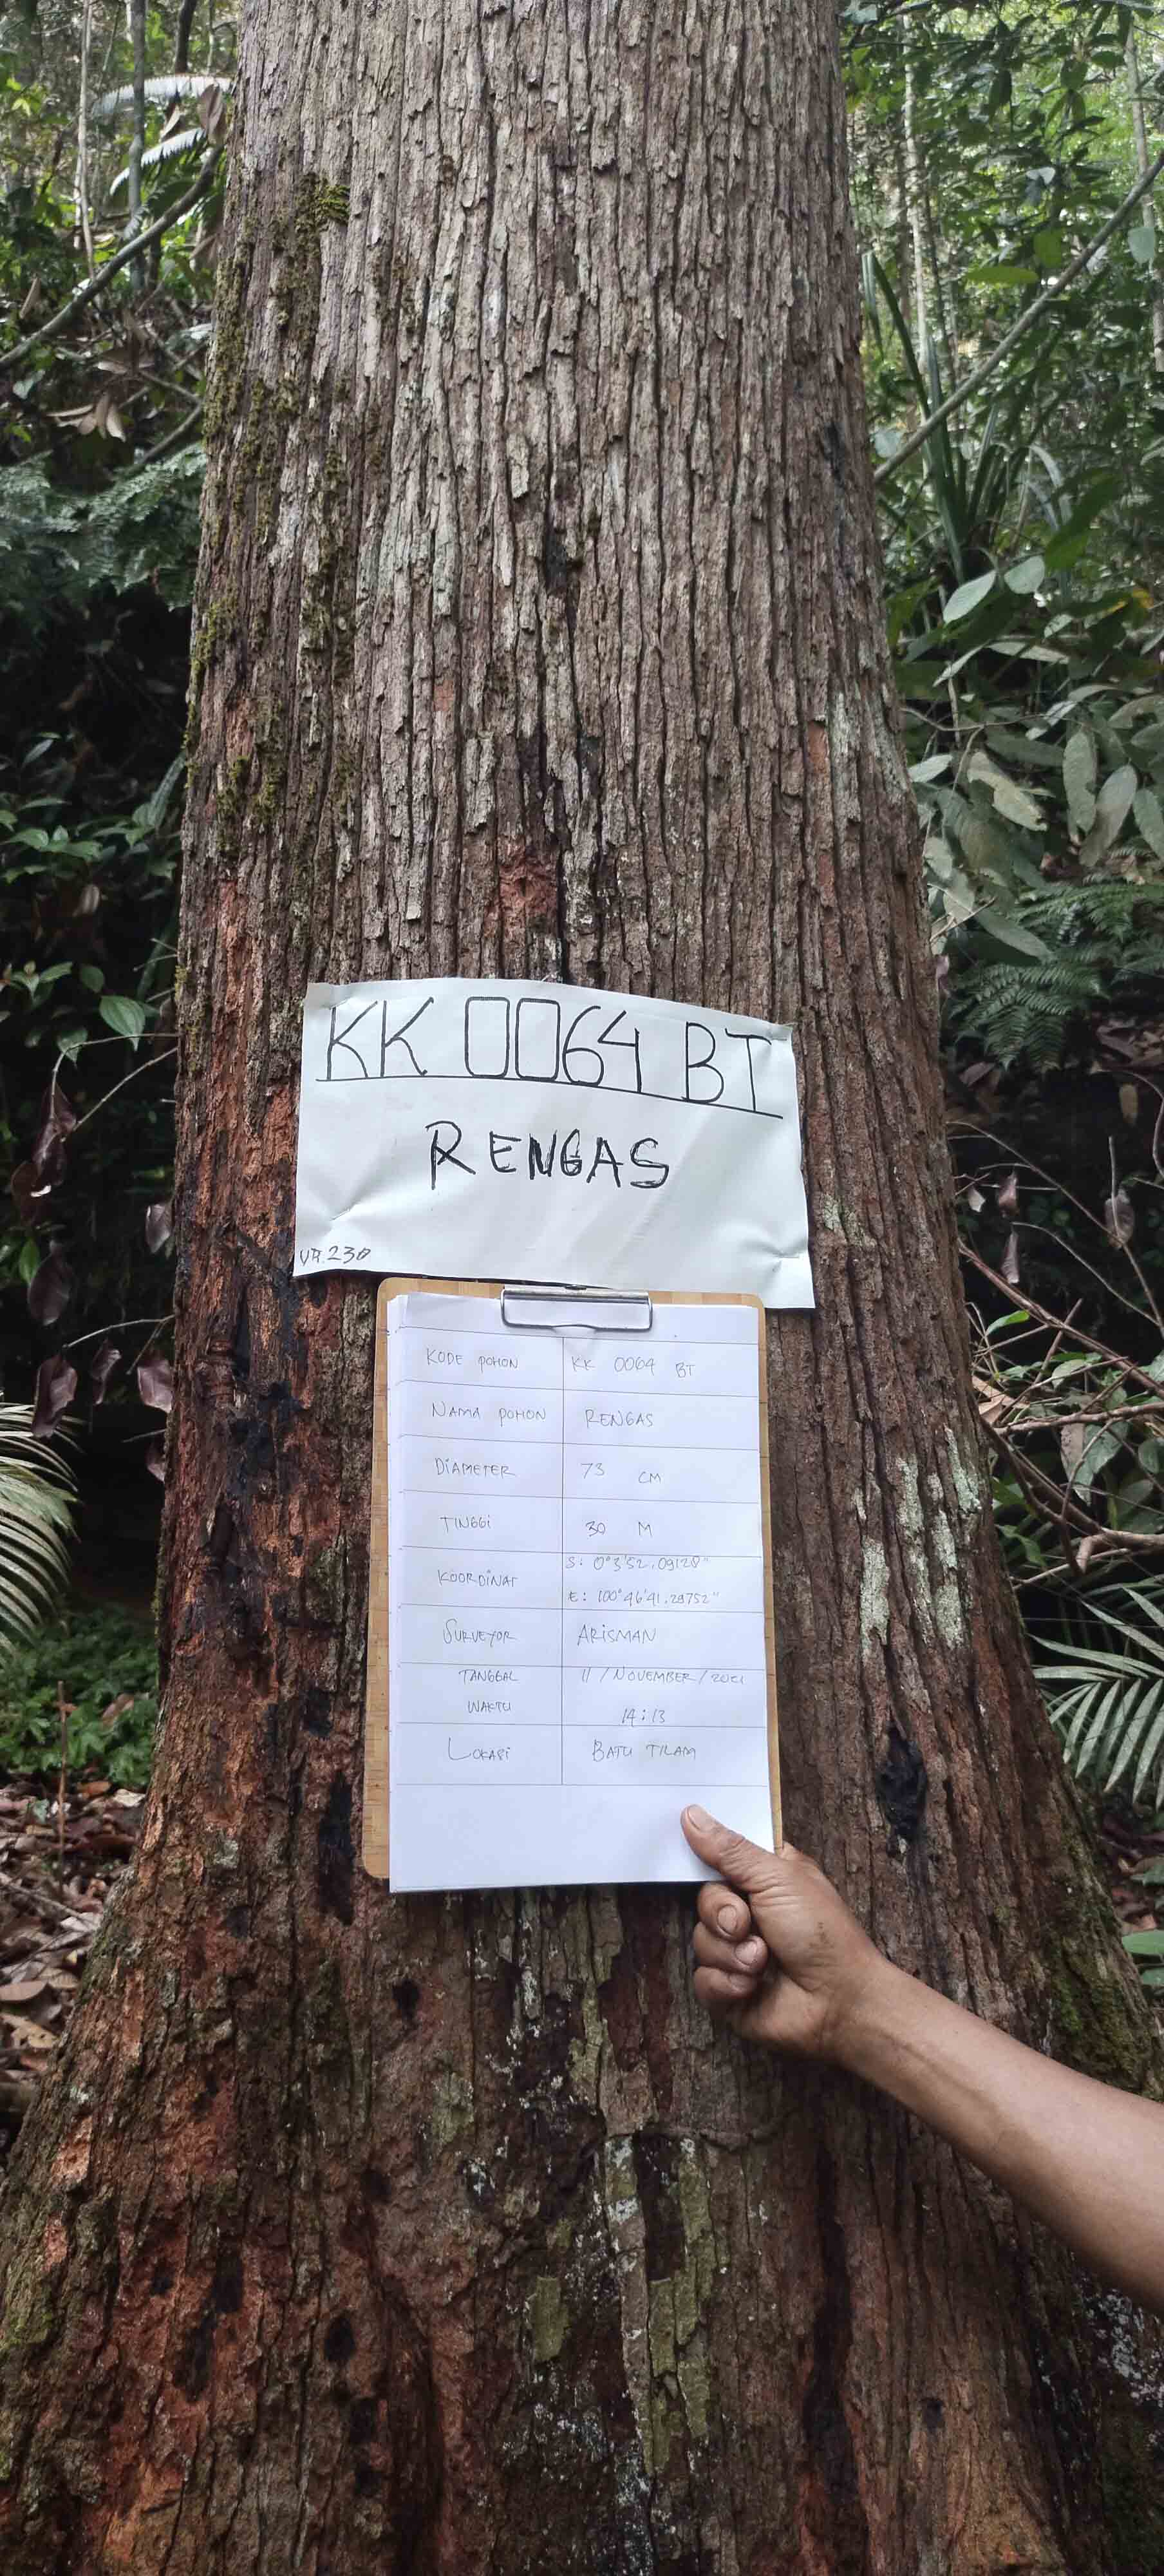 KK 0064 BT
RENGAS
VA.230
KODE POHON KK 0064 BT
NAMA POHON RENGAS
DIAMETER 73 CM
TINGGI 30 M
KOORDINAT S: 0°3'52.09128"
E: 100°46'41.28752"
SURVEYOR ARISMAN
TANGGAL 11/NOVEMBER/2021
WAKTU 14:13
LOKASI BATU TILAM